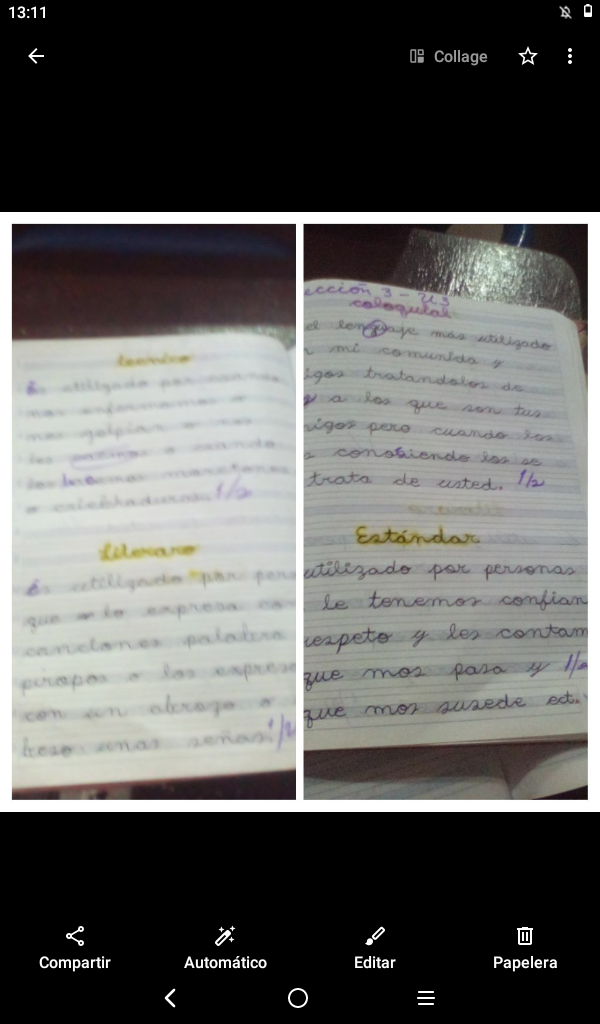 13:11
Collage
tecnico
Es utilizado por cuando
nos enfermamos o
nos golpiar o nos
o cuando
maratones
o celebraduras. 1/2
Literaro
Es utilizado por pers
que o lo expresa co
canciones palabra
piropos o los expresa
con un abrazo o
beso unas señas. 1/2
ección 3 - U3
coloquial
el lenguaje más utilizado
n mi comunida y
igos tratandolos de
y a los que son tus
migos pero cuando los
s conosiendo los se
trata de usted. 1/2
Estándar
utilizado por personas
le tenemos confian
respeto y les contam
que mos pasa y 1/2
que mos susede ect.
Compartir
Automático
Editar
Papelera